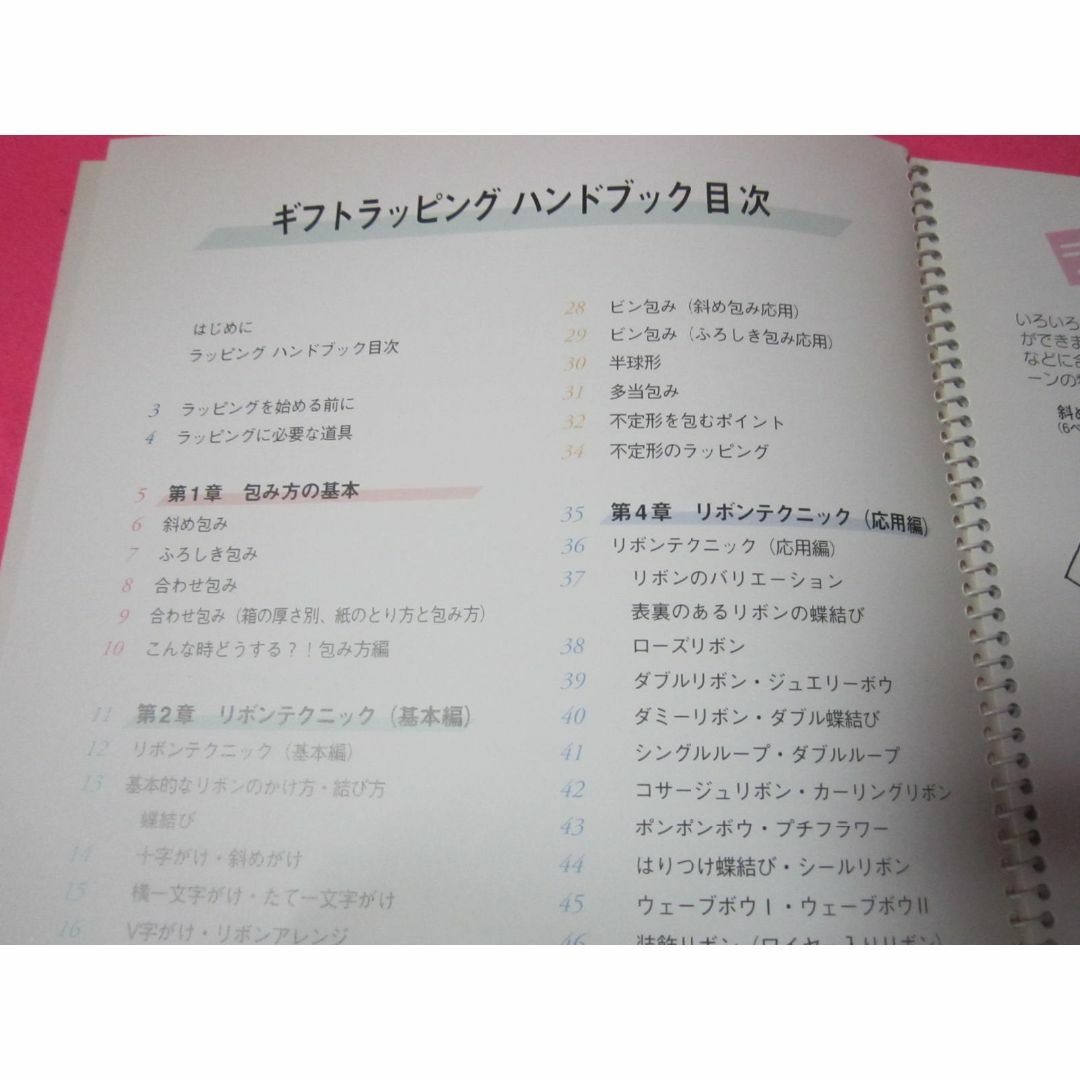 ギフトラッピング ハンドブック 目次
はじめに
ラッピング ハンドブック目次
3 ラッピングを始める前に
4 ラッピングに必要な道具
5 第1章 包み方の基本
6 斜め包み
7 ふろしき包み
8 合わせ包み
9 合わせ包み（箱の厚さ別、紙のとり方と包み方）
10 こんな時どうする？！包み方編
11 第2章 リボンテクニック（基本編）
12 リボンテクニック（基本編）
13 基本的なリボンのかけ方・結び方
蝶結び
14 十字がけ・斜めがけ
15 横一文字がけ・たて一文字がけ
16 V字がけ・リボンアレンジ
28 ビン包み（斜め包み応用）
29 ビン包み（ふろしき包み応用）
30 半球形
31 多当包み
32 不定形を包むポイント
34 不定形のラッピング
35 第4章 リボンテクニック（応用編）
36 リボンテクニック（応用編）
37 リボンのバリエーション
表裏のあるリボンの蝶結び
38 ローズリボン
39 ダブルリボン・ジュエリーボウ
40 ダミーリボン・ダブル蝶結び
41 シングルループ・ダブルループ
42 コサージュリボン・カーリングリボン
43 ポンポンボウ・プチフラワー
44 はりつけ蝶結び・シールリボン
45 ウェーブボウⅠ・ウェーブボウⅡ
46 装飾リボン（ワイヤー入りリボン）
いろいろ
ができま
などに合
ーンの
斜め
(6ペ